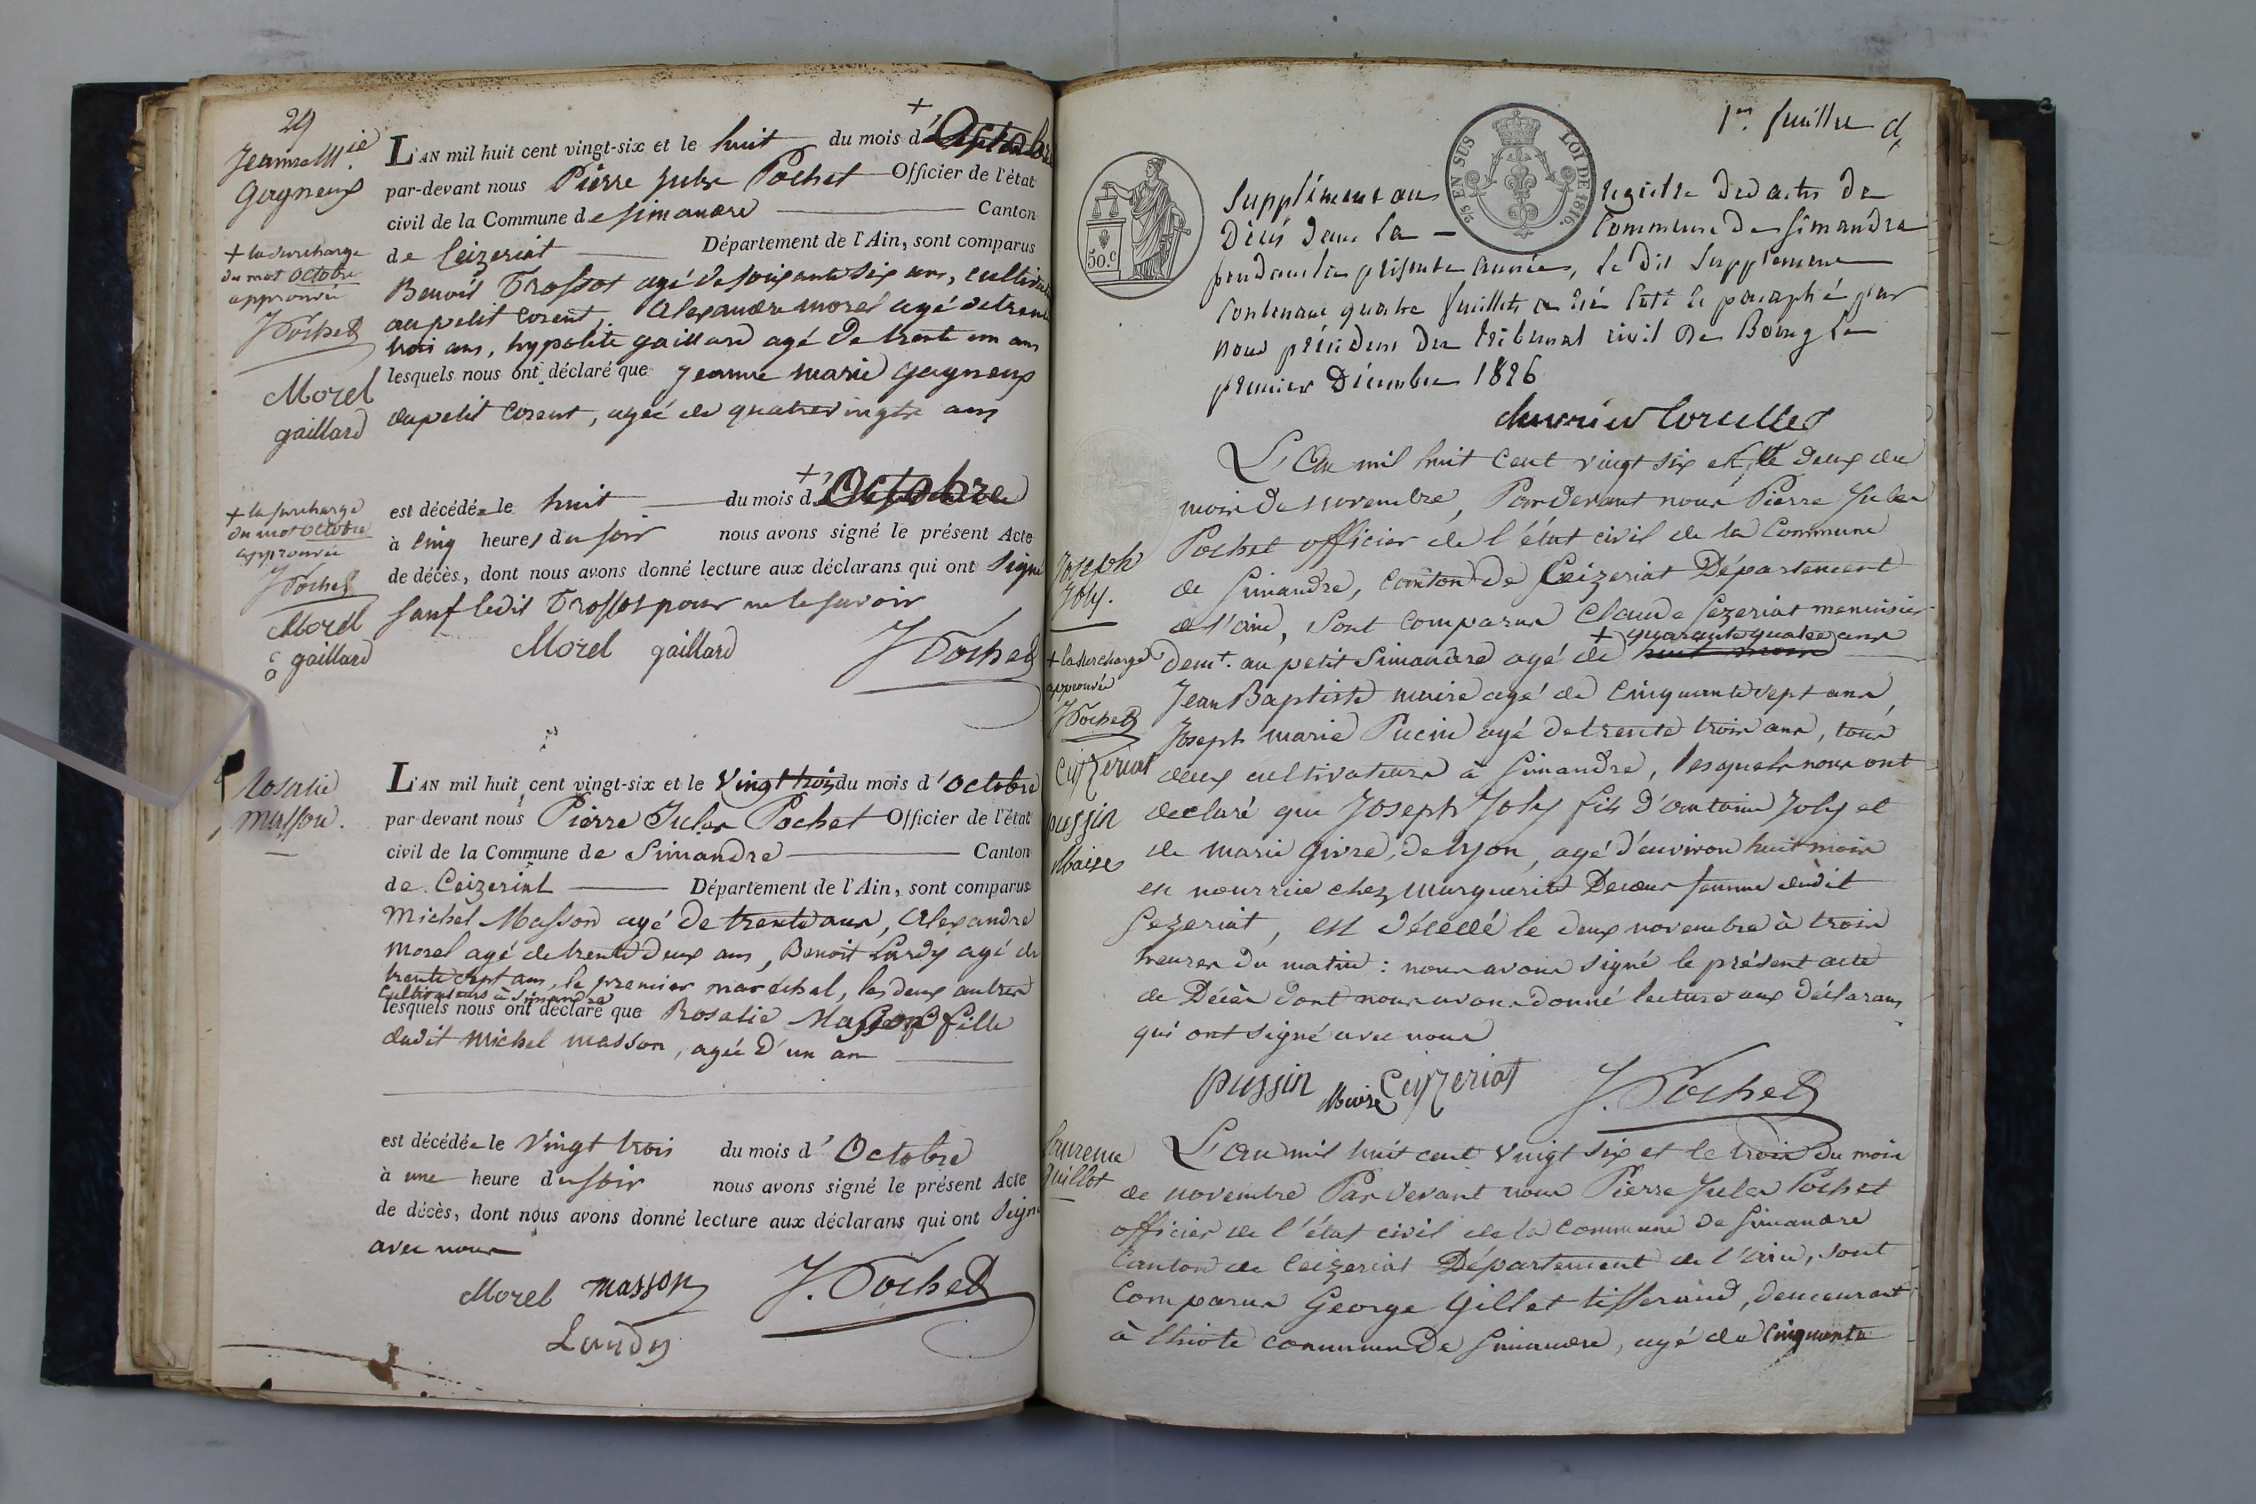 29
Jeanne M.ie
Gagneux
L'AN mil huit cent vingt-six et le huit du mois d'Octobre
par-devant nous Pierre Jules Pochet Officier de l'état
civil de la Commune de Simandre Canton
de Ceizeriat Département de l'Ain, sont comparus
Benoit Trossot agé de soixante six ans, cultivateur
au petit Corent, Alexandre Morel agé de trente
trois ans, hypolite gaillard agé de trente un ans
lesquels nous ont déclaré que Jeanne Marie Gagneux
du petit Corent, agée de quatre vingts ans
+ la surcharge
du mot Octobre
approuvée
J Pochet
Morel
gaillard
est décédée le huit du mois d'Octobre
à cinq heures du soir nous avons signé le présent Acte
de décès, dont nous avons donné lecture aux déclarans qui ont signé
sauf ledit Trossot pour ne le savoir
Morel gaillard J Pochet
+ la surcharge
du mot Octobre
approuvée
J Pochet
Morel
gaillard
Rosalie
Masson.
L'AN mil huit cent vingt-six et le vingt trois du mois d'Octobre
par-devant nous Pierre Jules Pochet Officier de l'état
civil de la Commune de Simandre Canton
de Ceizeriat Département de l'Ain, sont comparus
Michel Masson agé de trente ans, Alexandre
Morel agé de trente deux ans, Benoit Lurdy agé de
trente sept ans, le premier maréchal, les deux autres
cultivateurs à Simandre
lesquels nous ont déclaré que Rosalie Masson fille
dudit Michel Masson, agée d'un an
est décédée le vingt trois du mois d'Octobre
à une heure du soir nous avons signé le présent Acte
de décès, dont nous avons donné lecture aux déclarans qui ont signé
avec nous
Morel Masson J. Pochet
Lurdy
1er feuillet
50.c
25 EN SUS LOI DE 1816.
Supplément au registre des actes de
Décés dans la commune de Simandre
pendant la présente année, le dit Supplément
contenant quatre feuillets a été cotté et paraphé par
nous président du tribunal civil de Bourg le
premier Décembre 1826
L'An mil huit cent vingt six et le deux du
mois de novembre, Pardevant nous Pierre Jules
Pochet officier de l'état civil de la Commune
de Simandre, canton de Ceizeriat Département
de l'ain, Sont comparus Claude Cezeriat menuisier
demt. au petit Simandre agé de + quarante quatre ans
Jean Baptiste maire agé de cinquante sept ans,
Joseph marie Pucin agé de trente trois ans, tous
deux cultivateurs à Simandre, lesquels nous ont
declaré que Joseph Joly fils d'antoine Joly et
de marie Givre, de lyon, agé d'environ huit mois
en nourrice chez Marguerite Decœur femme dudit
Cezeriat, est décédé le deux novembre à trois
heures du matin : nous avons signé le présent acte
de Décès dont nous avons donné lecture aux déclarans
qui ont signé avec nous
pussin Maire Ceyzeriat J. Pochet
Joseph
Joly.
+ la surcharge
approuvée
J Pochet
Ceyzeriat
pussin
Maire
Laurence
Guillot
L'An mil huit cent vingt six et le trois du mois
de novembre Pardevant nous Pierre Jules Pochet
officier de l'état civil de la commune de Simandre
Canton de Ceizeriat Département de l'ain, sont
comparus George Gillet tisserand, demeurant
à commune de Simandre, agé de cinquante